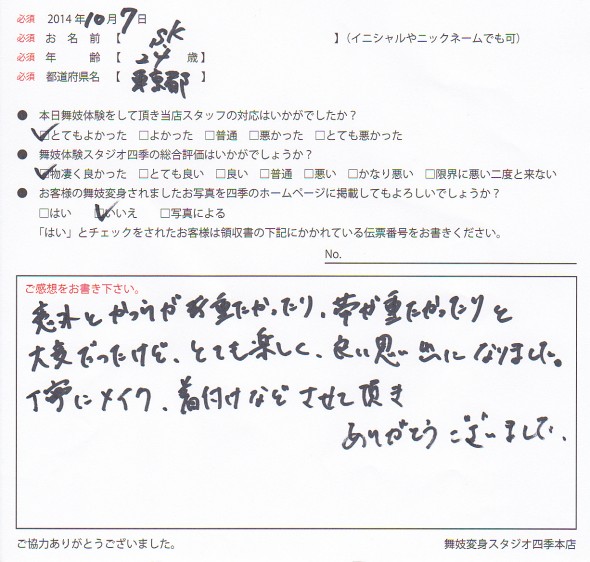 必須 2014年10月7日
必須 お名前【 S.K 】(イニシャルやニックネームでも可)
必須 年 齢【 24 歳】
必須 都道府県名【 東京都 】
● 本日舞妓体験をして頂き当店スタッフの対応はいかがでしたか?
□とてもよかった □よかった □普通 □悪かった □とても悪かった
● 舞妓体験スタジオ四季の総合評価はいかがでしょうか?
□物凄く良かった □とても良い □良い □普通 □悪い □かなり悪い □限界に悪い二度と来ない
● お客様の舞妓変身されましたお写真を四季のホームページに掲載してもよろしいでしょうか?
□はい □いいえ □写真による
「はい」とチェックをされたお客様は領収書の下記にかかれている伝票番号をお書きください。
No.
ご感想をお書き下さい。
とかつらが重たかったり、帯が重たかったりと
大変だったけど、とても楽しく、良い思い出になりました。
丁寧にメイク、着付けなどさせて頂き
ありがとうございました。
ご協力ありがとうございました。 舞妓変身スタジオ四季本店